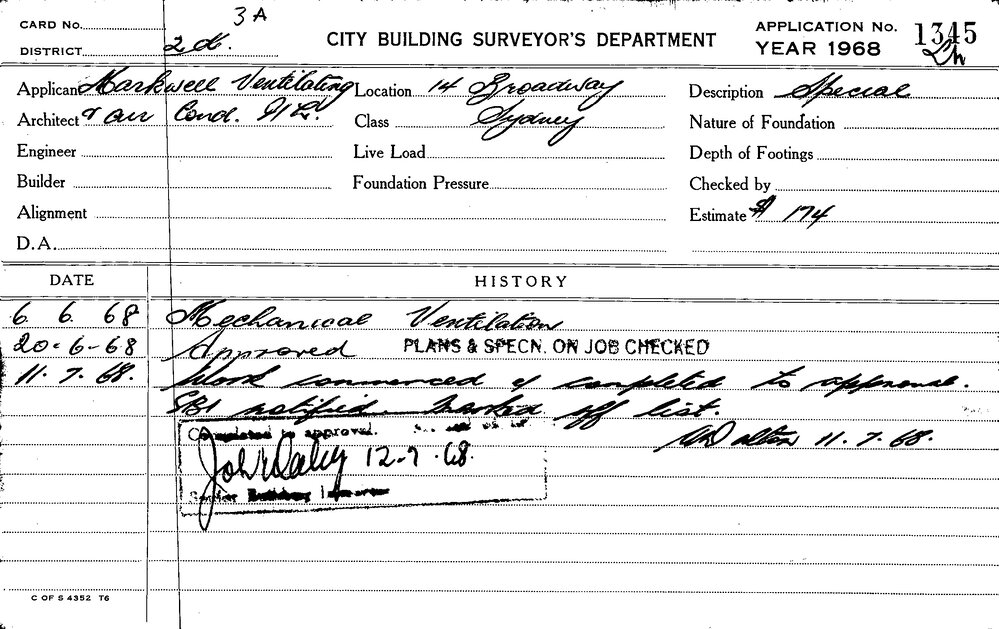 3A
CARD No.
DISTRICT
CITY BUILDING SURVEYOR'S DEPARTMENT
APPLICATION No. 1345
YEAR 1968
Applicant Markwell Ventilating
Location 14 Broadway
Description Special
Architect & air Cond. P/L.
Class Sydney
Nature of Foundation
Engineer
Live Load
Depth of Footings
Builder
Foundation Pressure
Checked by
Alignment
Estimate $ 174
D.A.
DATE
HISTORY
6. 6. 68 Mechanical Ventilation
20-6-68 Approved PLANS & SPECN. ON JOB CHECKED
11. 7. 68. Work commenced & completed to approval.
SBI notified. Marked off list.
11.7.68.
Completed to approval.
12-7.68.
Senior Building Inspector
C OF S 4352 T6